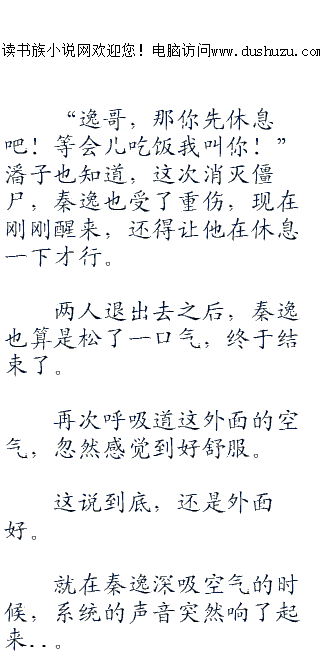 读书族小说网欢迎您！电脑访问www.dushuzu.com
“逸哥，那你先休息
吧！等会儿吃饭我叫你！”
潘子也知道，这次消灭僵
尸，秦逸也受了重伤，现在
刚刚醒来，还得让他在休息
一下才行。
两人退出去之后，秦逸
也算是松了一口气，终于结
束了。
再次呼吸道这外面的空
气，忽然感觉到好舒服。
这说到底，还是外面
好。
就在秦逸深吸空气的时
候，系统的声音突然响了起
来..。